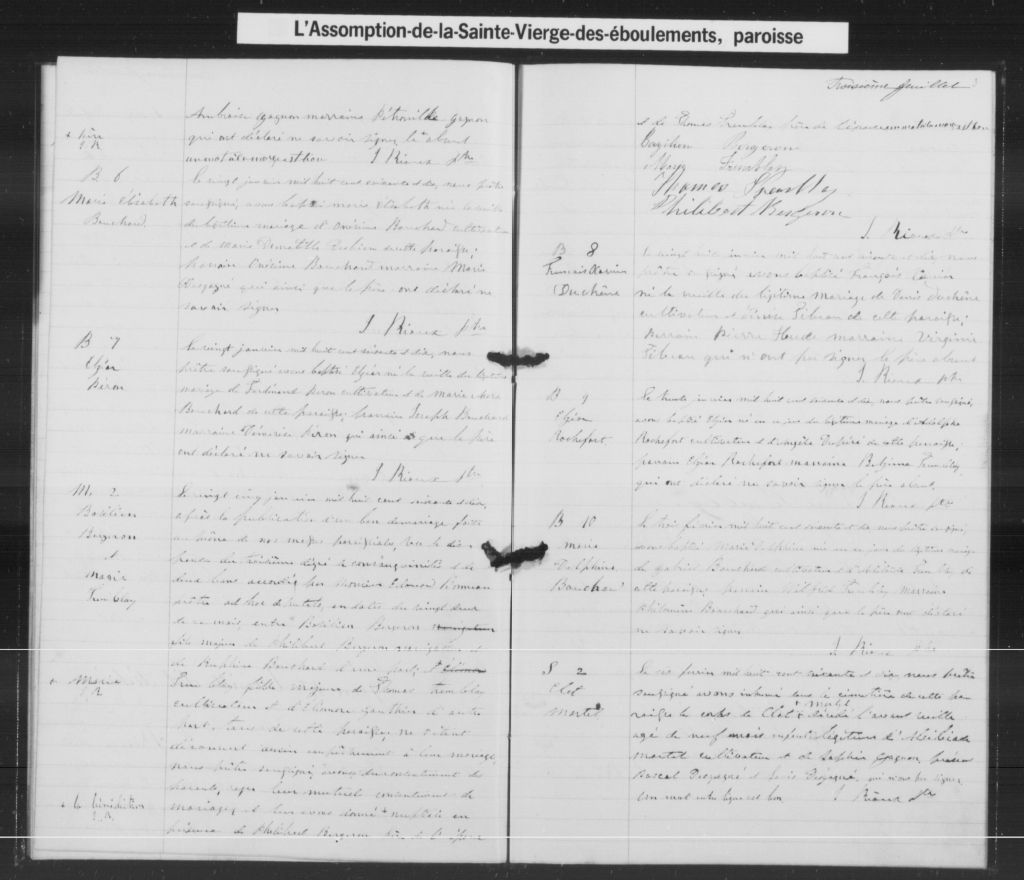 L'Assomption-de-la-Sainte-Vierge-des-éboulements, paroisse
Ambroise Gagnon marraine Pétronille Gagnon
qui ont déclaré ne savoir signer le + absent
un mot à la marge est bon J. Rioux ptre
+ père
J. R.
B 6
Marie Elisabeth
Bouchard
Le vingt janvier mil huit cent soixante et dix, nous prêtre
soussigné, avons baptisé marie Elisabeth née la veille
du légitime mariage d'Onésime Bouchard cultivateur
et de Marie de cette paroisse;
parrain Onésime Bouchard marraine Marie
Desgagné qui ainsi que le père ont déclaré ne
savoir signer
J. Rioux ptre
B 7
Elzéar
Piron
Le vingt janvier mil huit cent soixante et dix, nous
prêtre soussigné avons baptisé Elzéar né la veille du légitime
mariage de Ferdinand Piron cultivateur et de Marie
Bouchard de cette paroisse, parrain Joseph Bouchard
marraine Piron qui ainsi que le père
ont déclaré ne savoir signer
J. Rioux ptre
M. 2
Basilien
Bergeron
&
Marie
Tremblay
Le vingt cinq janvier mil huit cent soixante et dix,
après la publication d'un ban de mariage faite
au prône de nos messes paroissiales, vu la dis-
pense du troisième degré de consanguinité et de
deux bans accordée par Monsieur Edouard
prêtre ad hoc député, en date du vingt deux
de ce mois, entre Basilien Bergeron navigateur
fils majeur de Philibert Bergeron navigateur et
de Bouchard d'une part, et +
+ Marie
J. R
Tremblay, fille majeure de Thomas Tremblay
cultivateur et d'Eléonore Gauthier d'autre
part, tous de cette paroisse, ne s'étant
découvert aucun empêchement à leur mariage,
nous prêtre soussigné, avons du consentement des
parents, reçu leur mutuel consentement de
mariage, et leur avons donné + nuptiale en
+ la bénédiction
J. R.
présence de Philibert Bergeron père de l'époux
Troisième feuillet
et de Thomas Tremblay père de l'épouse un mot à la marge est bon
Bergeron
Marie Tremblay
Thomas Tremblay
Philibert Bergeron
J. Rioux ptre
B 8
François Xavier
Duchêne
Le vingt huit janvier mil huit cent soixante et dix, nous
prêtre soussigné avons baptisé François Xavier
né la veille du légitime mariage de Denis Duchêne
cultivateur et d' de cette paroisse;
parrain Pierre marraine Virginie
qui n'ont pu signer le père absent
J. Rioux ptre
B 9
Elzéar
Rochefort
Le trente janvier mil huit cent soixante et dix, nous prêtre soussigné,
avons baptisé Elzéar né ce jour du légitime mariage d'Adolphe
Rochefort cultivateur et d'Angèle Dufour de cette paroisse;
parrain Elzéar Rochefort marraine Tremblay
qui ont déclaré ne savoir signer le père absent.
J. Rioux ptre
B 10
Marie
Delphine
Bouchard
Le trois février mil huit cent soixante et dix, nous prêtre soussigné,
avons baptisé Marie Delphine née ce jour du légitime mariage
de Gabriel Bouchard cultivateur et d' Tremblay de
cette paroisse, parrain Wilfrid Tremblay marraine
Philomène Bouchard qui ainsi que le père ont déclaré
ne savoir signer
J. Rioux ptre
S 2
Clet
Martel
Le six février mil huit cent soixante et dix nous prêtre
soussigné avons inhumé dans le cimetière de cette pa-
roisse le corps de Clet + décédé l'avant veille
+ Martel
agé de neuf mois enfant légitime d'Alcibiade
Martel cultivateur et de Gagnon, présents
Pascal Desgagné et Desgagné, qui n'ont pu signer
Un mot entre ligne est bon J. Rioux ptre